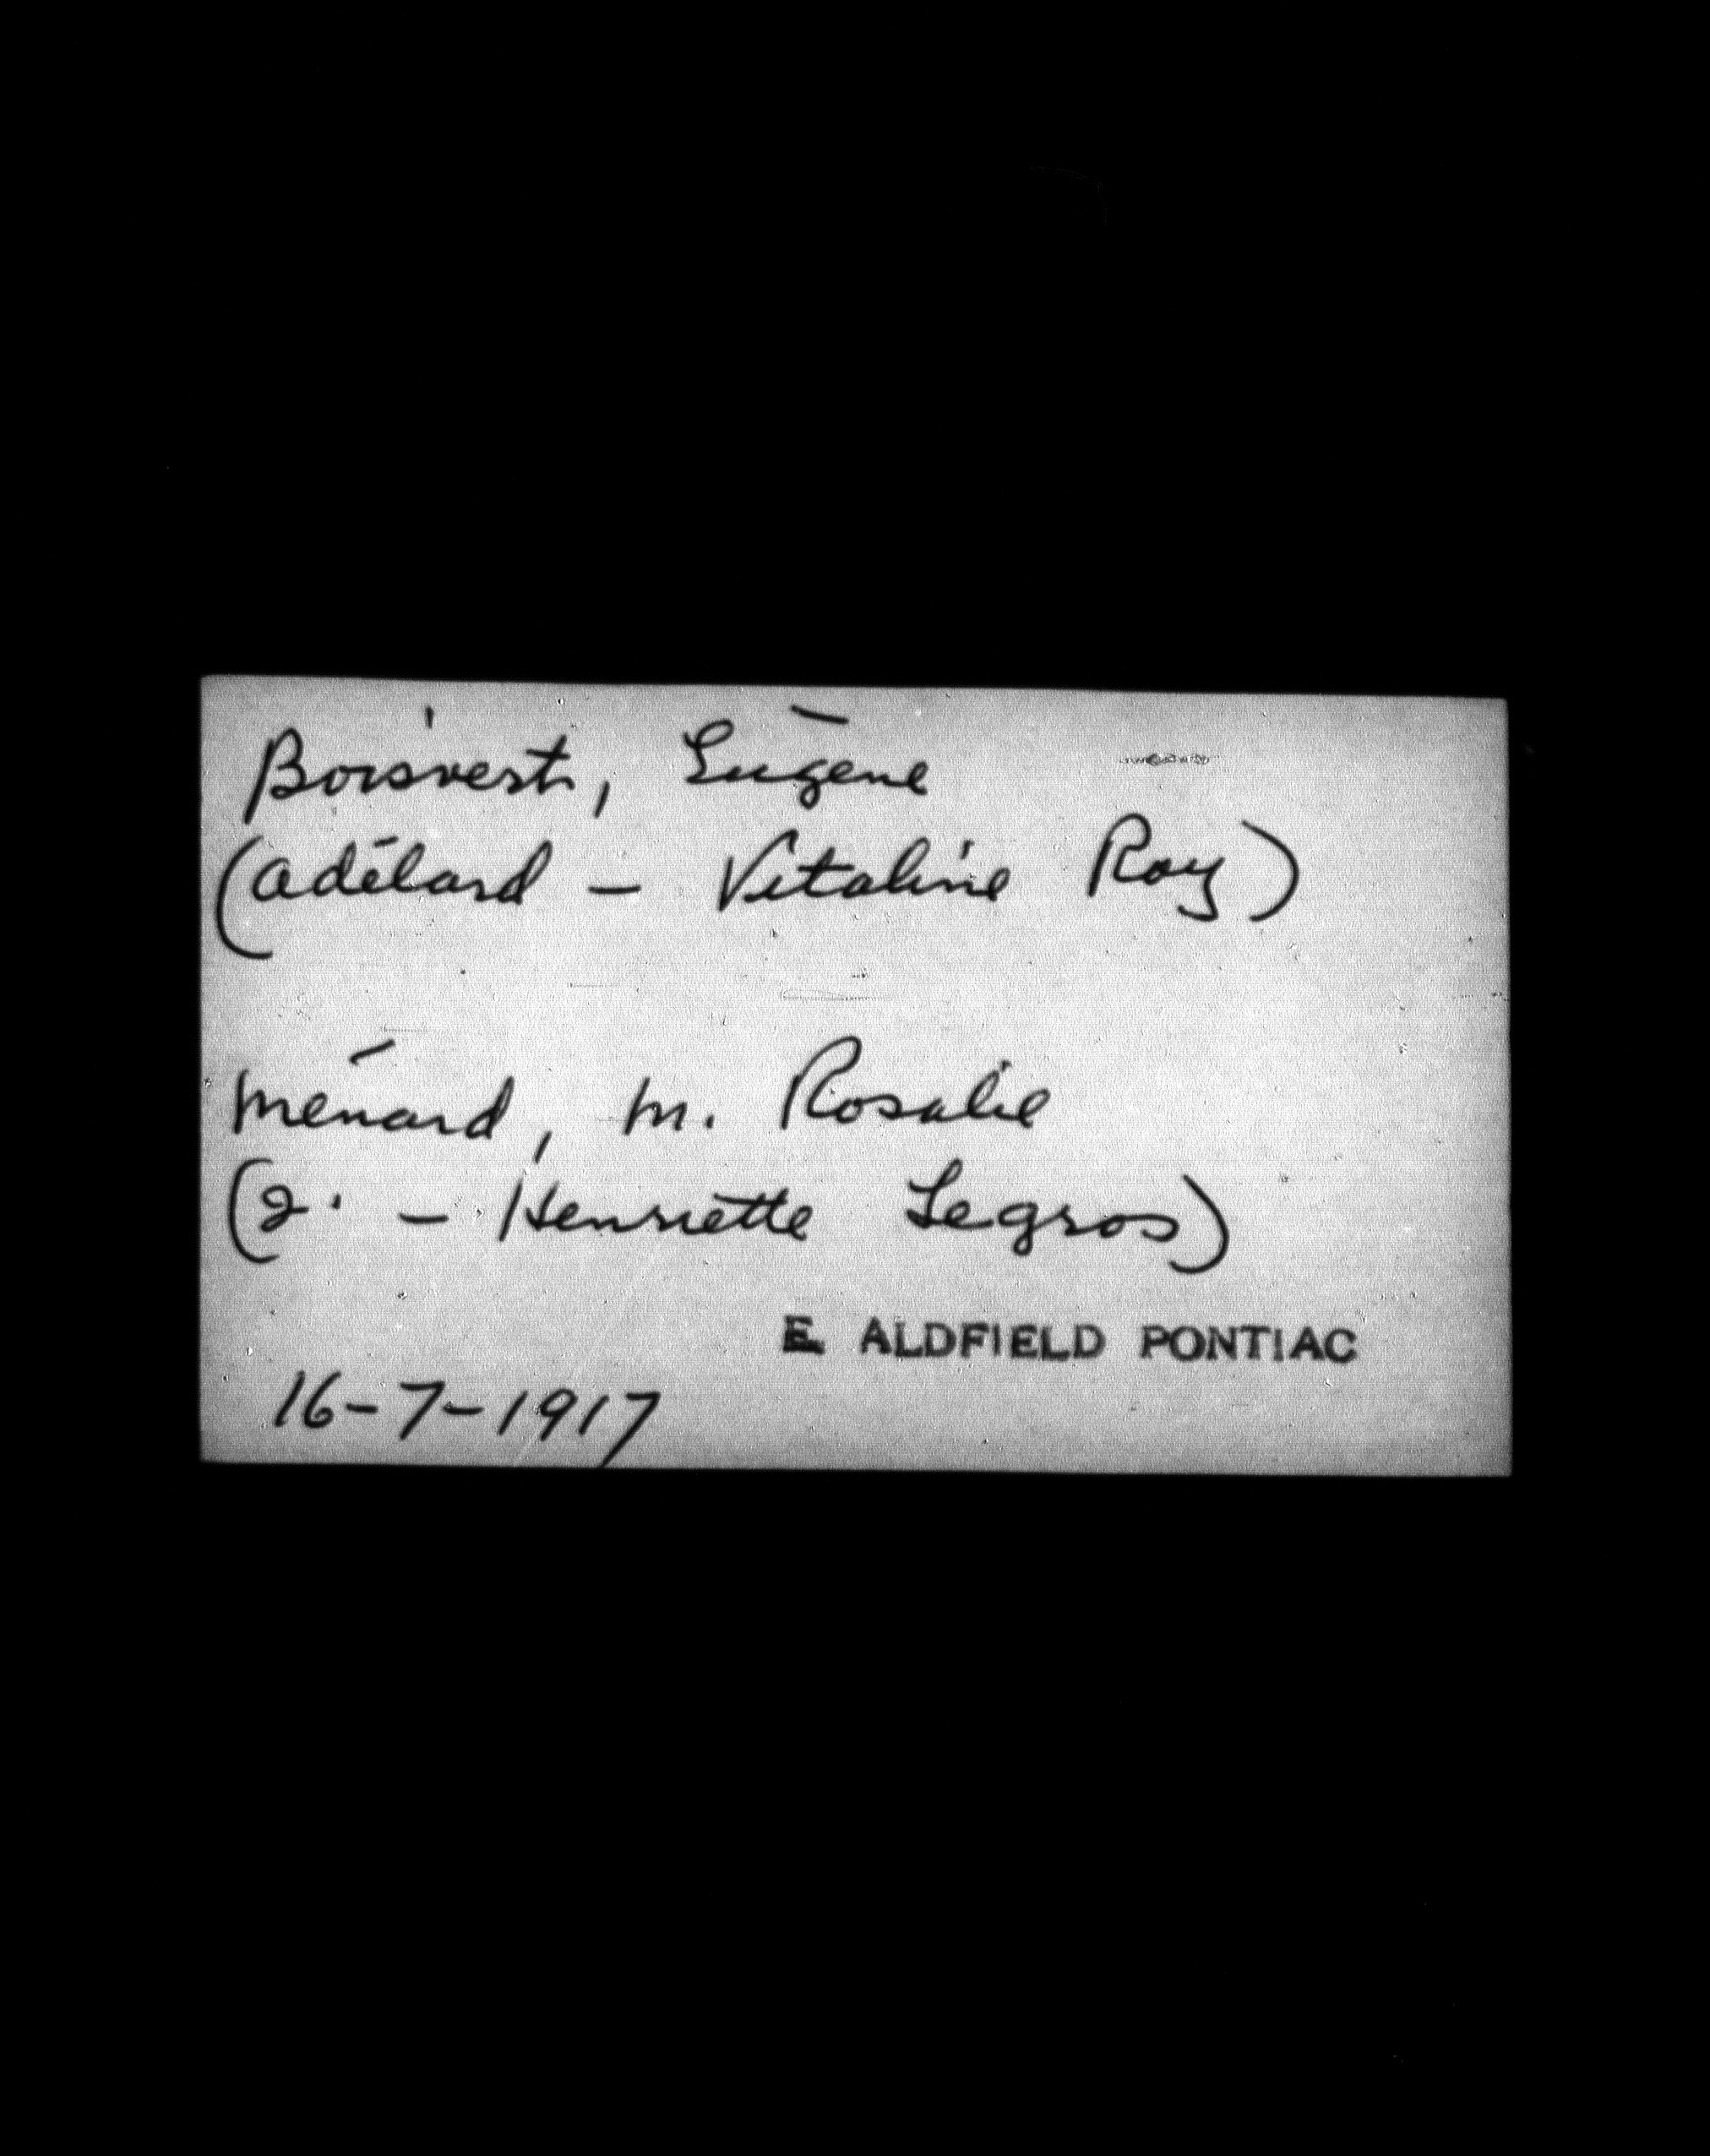 Boisvert, Eugène
(Adélard - Vitaline Roy)
Ménard, M. Rosalie
(2. - Henriette Legros)
E. ALDFIELD PONTIAC
16-7-1917